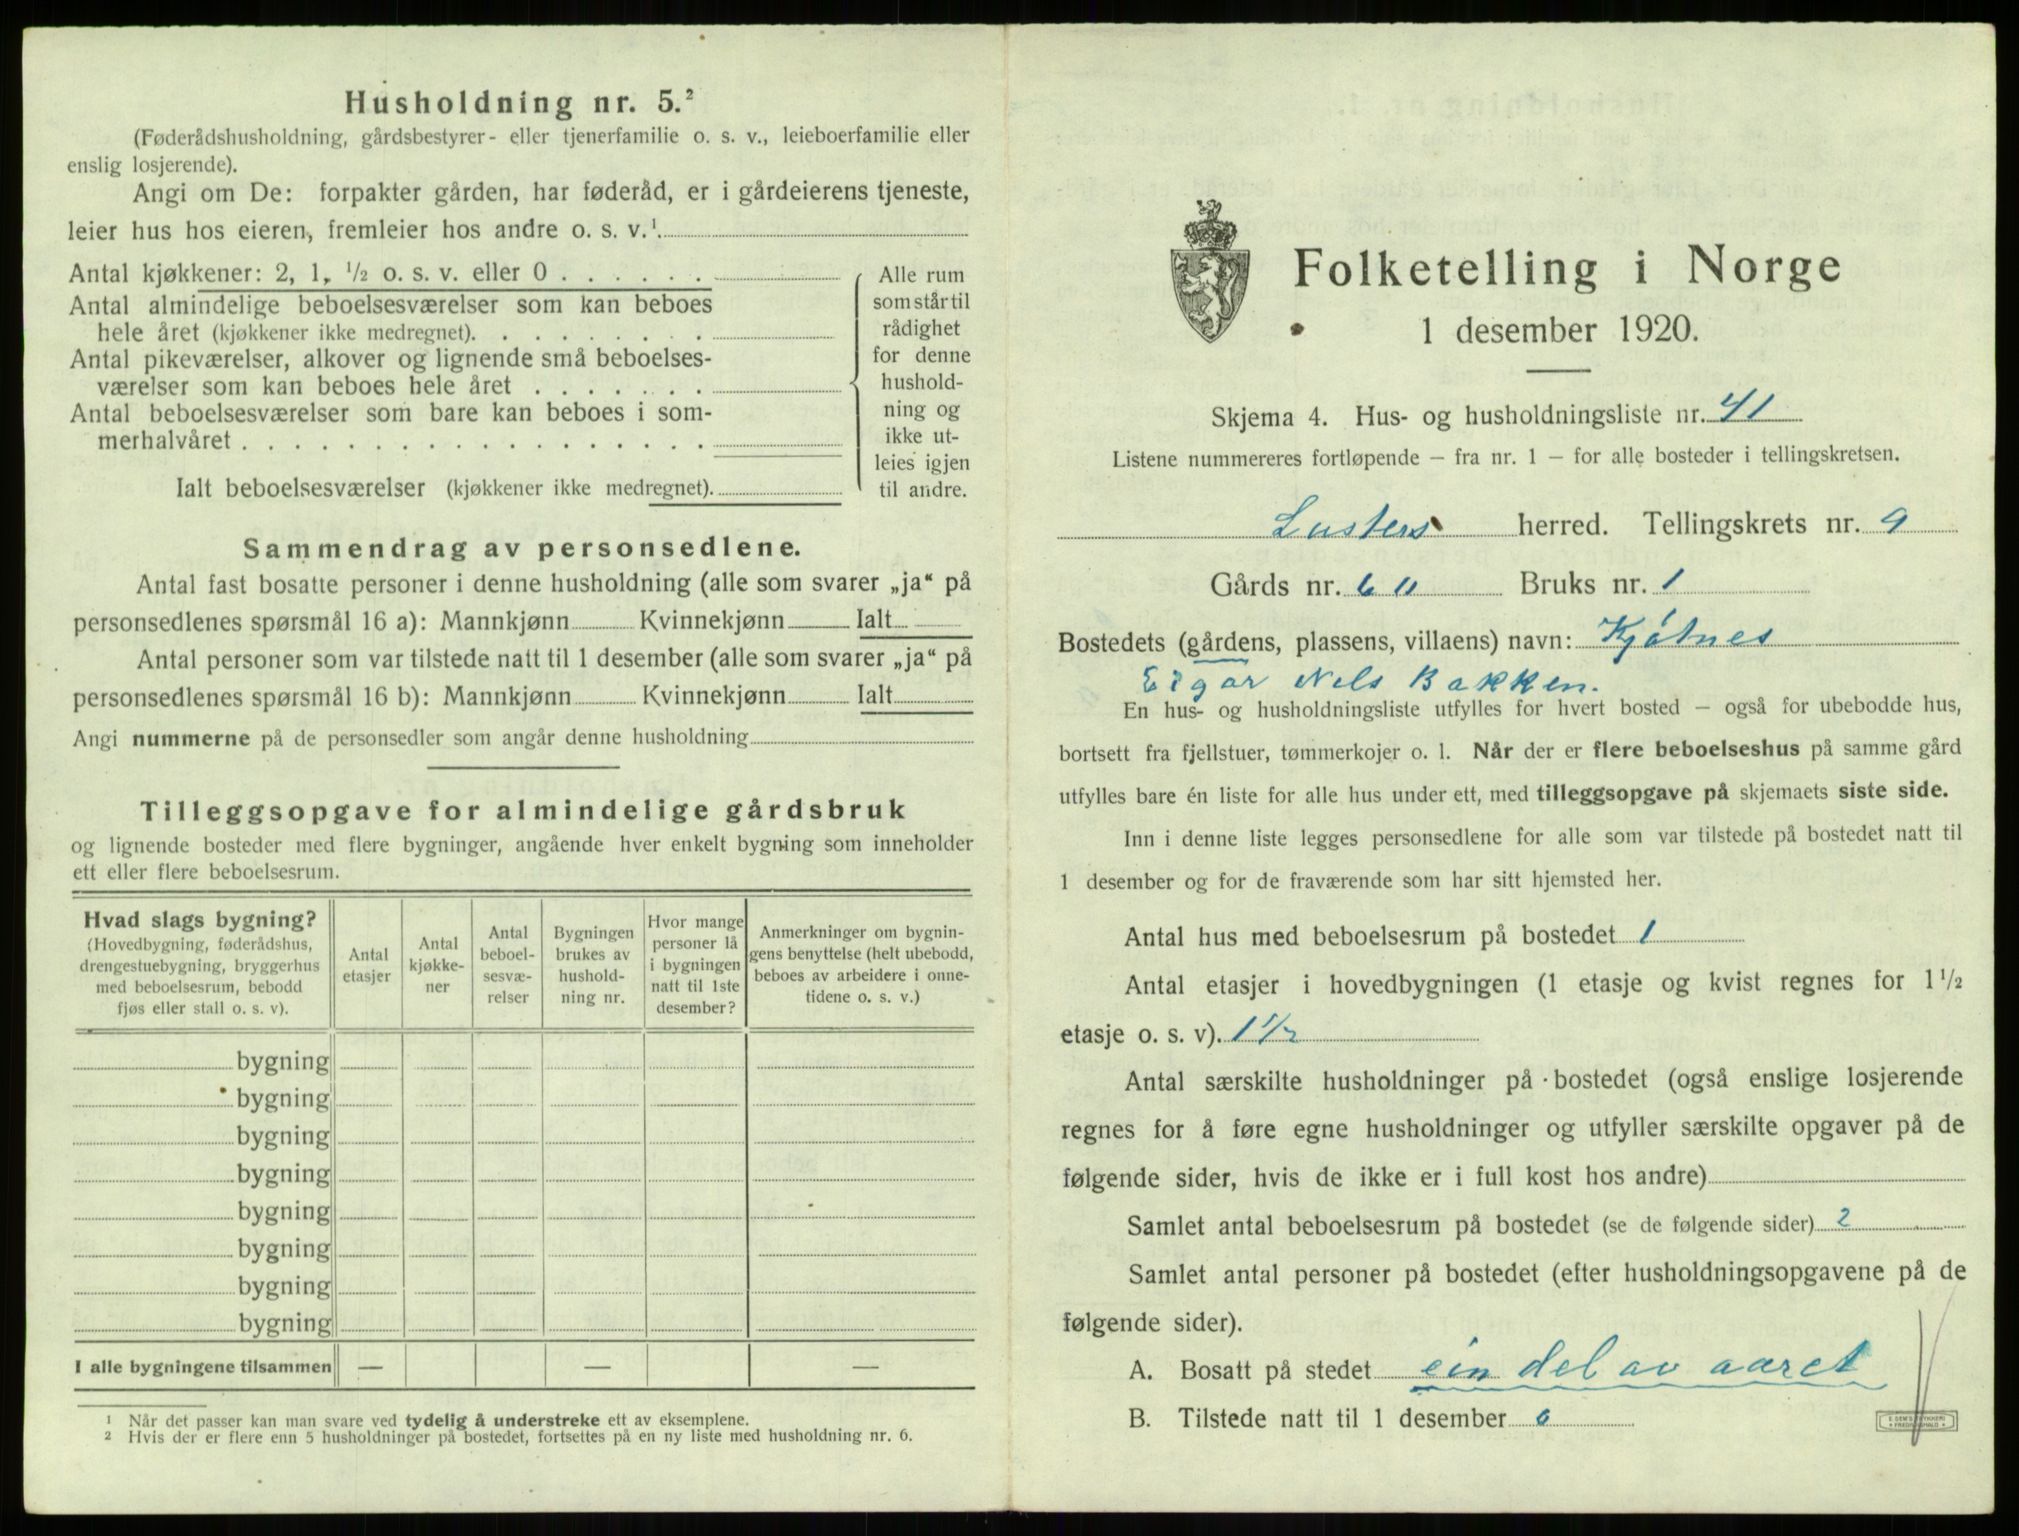 Husholdning nr. 5.²
(Føderådshusholdning, gårdsbestyrer- eller tjenerfamilie o. s. v., leieboerfamilie eller
enslig losjerende).
Angi om De: forpakter gården, har føderåd, er i gårdeierens tjeneste,
leier hus hos eieren, fremleier hos andre o. s. v.¹
Antal kjøkkener: 2, 1, ½ o. s. v. eller 0
Antal almindelige beboelsesværelser som kan beboes
hele året (kjøkkener ikke medregnet).
Antal pikeværelser, alkover og lignende små beboelses-
værelser som kan beboes hele året
Antal beboelsesværelser som bare kan beboes i som-
merhalvåret
Ialt beboelsesværelser (kjøkkener ikke medregnet).
Alle rum
som står til
rådighet
for denne
hushold-
ning og
ikke ut-
leies igjen
til andre.
Sammendrag av personsedlene.
Antal fast bosatte personer i denne husholdning (alle som svarer „ja“ på
personsedlenes spørsmål 16 a): Mannkjønn Kvinnekjønn Ialt
Antal personer som var tilstede natt til 1 desember (alle som svarer „ja“ på
personsedlenes spørsmål 16 b): Mannkjønn Kvinnekjønn Ialt
Angi nummerne på de personsedler som angår denne husholdning
Tilleggsopgave for almindelige gårdsbruk
og lignende bosteder med flere bygninger, angående hver enkelt bygning som inneholder
ett eller flere beboelsesrum.
Hvad slags bygning?
(Hovedbygning, føderådshus,
drengestuebygning, bryggerhus
med beboelsesrum, bebodd
fjøs eller stall o. s. v).
Antal
etasjer
Antal
kjøkke-
ner
Antal
beboel-
sesvæ-
relser
Bygningen
brukes av
hushold-
ning nr.
Hvor mange
personer lå
i bygningen
natt til 1ste
desember?
Anmerkninger om bygnin-
gens benyttelse (helt ubebodd,
beboes av arbeidere i onne-
tidene o. s. v.)
bygning
bygning
bygning
bygning
bygning
bygning
bygning
bygning
I alle bygningene tilsammen — — —
¹ Når det passer kan man svare ved tydelig å understreke ett av eksemplene.
² Hvis der er flere enn 5 husholdninger på bostedet, fortsettes på en ny liste med husholdning nr. 6.
Folketelling i Norge
1 desember 1920.
Skjema 4. Hus- og husholdningsliste nr. 41
Listene nummereres fortløpende – fra nr. 1 – for alle bosteder i tellingskretsen.
Lusters herred. Tellingskrets nr. 9
Gårds nr. 60 Bruks nr. 1
Bostedets (gårdens, plassens, villaens) navn: Kjøtnes
Eigar Nels Bakken.
En hus- og husholdningsliste utfylles for hvert bosted – også for ubebodde hus,
bortsett fra fjellstuer, tømmerkojer o. l. Når der er flere beboelseshus på samme gård
utfylles bare én liste for alle hus under ett, med tilleggsopgave på skjemaets siste side.
Inn i denne liste legges personsedlene for alle som var tilstede på bostedet natt til
1 desember og for de fraværende som har sitt hjemsted her.
Antal hus med beboelsesrum på bostedet 1
Antal etasjer i hovedbygningen (1 etasje og kvist regnes for 1½
etasje o. s. v). 1½
Antal særskilte husholdninger på bostedet (også enslige losjerende
regnes for å føre egne husholdninger og utfyller særskilte opgaver på de
følgende sider, hvis de ikke er i full kost hos andre)
Samlet antal beboelsesrum på bostedet (se de følgende sider) 2
Samlet antal personer på bostedet (efter husholdningsopgavene på de
følgende sider).
A. Bosatt på stedet ein del av aaret
B. Tilstede natt til 1 desember 0